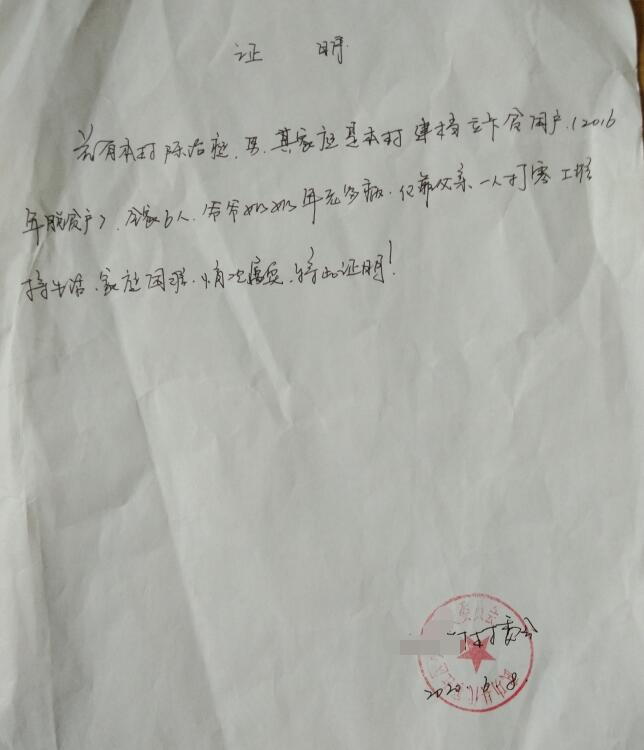 证 明
兹有本村陈治庭,男,其家庭是本村建档立卡贫困户,(2016
年脱贫户),全家6人,爷爷奶奶年老多病,仅靠父亲一人打零工维
持生活,家庭困难,情况属实,特此证明!
村委会
2020.6.8